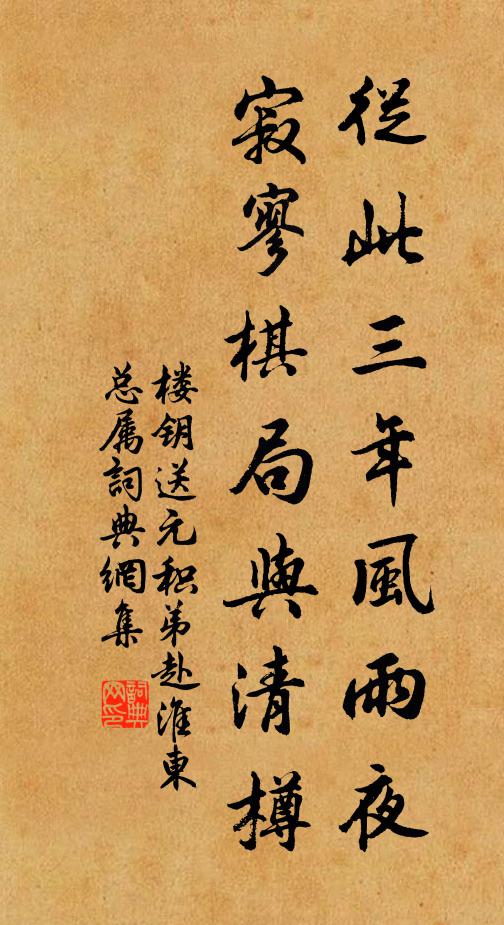 從此三年風雨夜
寂寥棋局與清樽
楼钥送元积弟赴淮東
总属詞典網集
詞典
网印